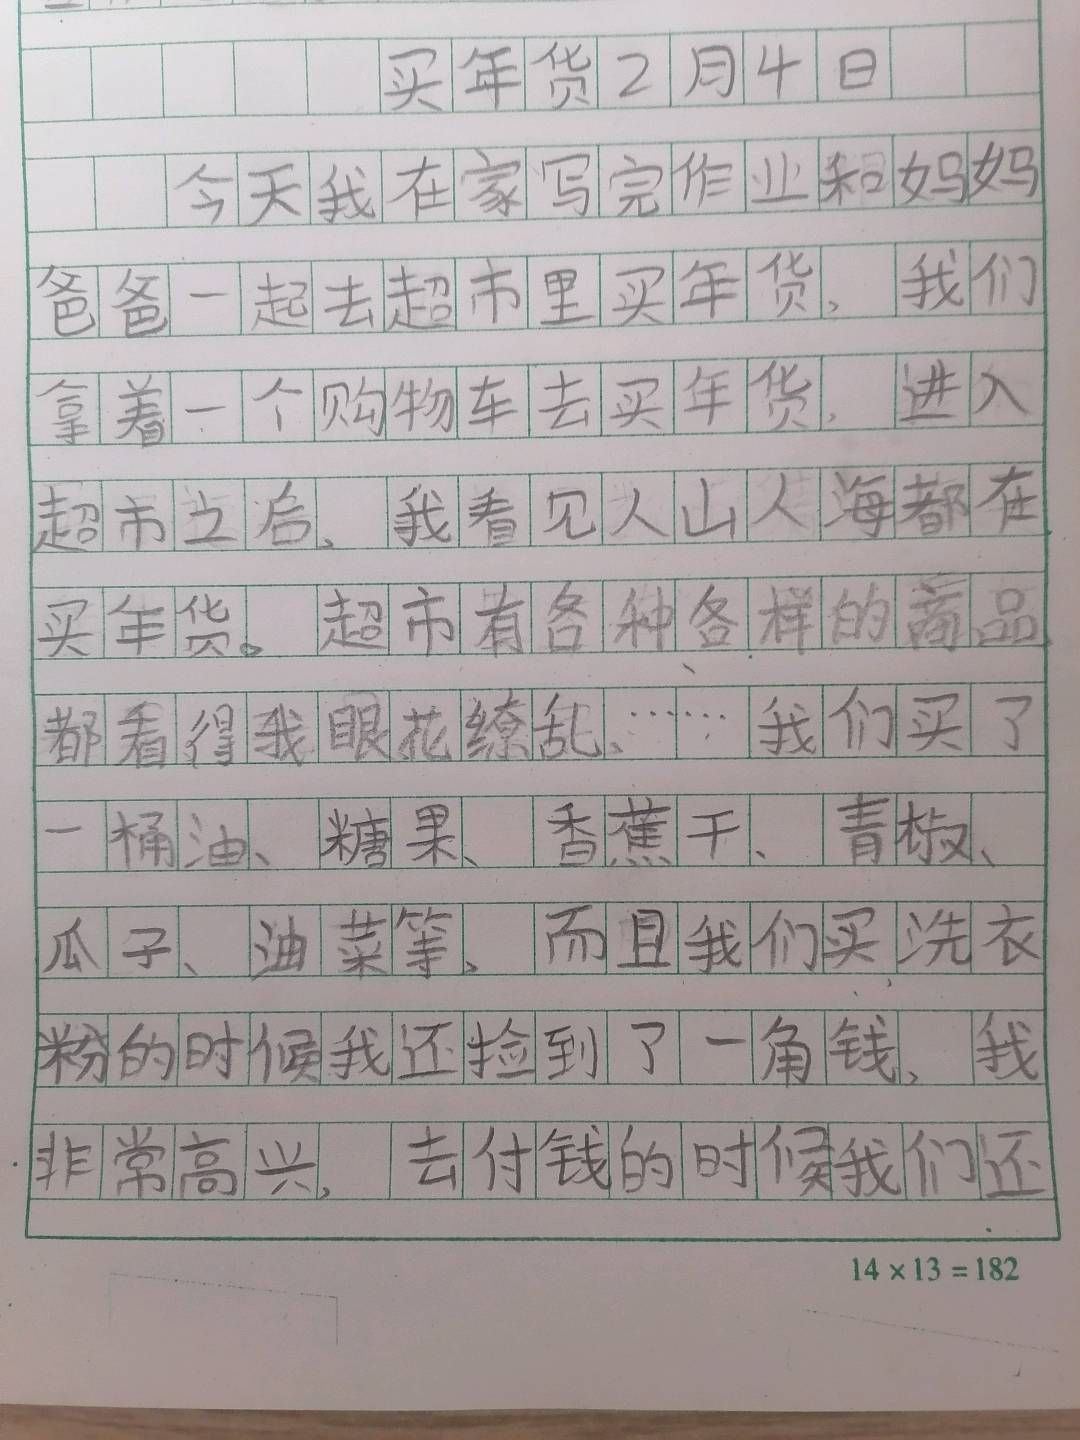 买年货2月4日
今天我在家写完作业和妈妈
爸爸一起去超市里买年货,我们
拿着一个购物车去买年货,进入
超市之后,我看见人山人海都在
买年货。超市有各种各样的商品
都看得我眼花缭乱、……我们买了
一桶油、糖果、香蕉干、青椒、
瓜子、油菜等、而且我们买洗衣
粉的时候我还捡到了一角钱,我
非常高兴,去付钱的时候我们还
14×13=182